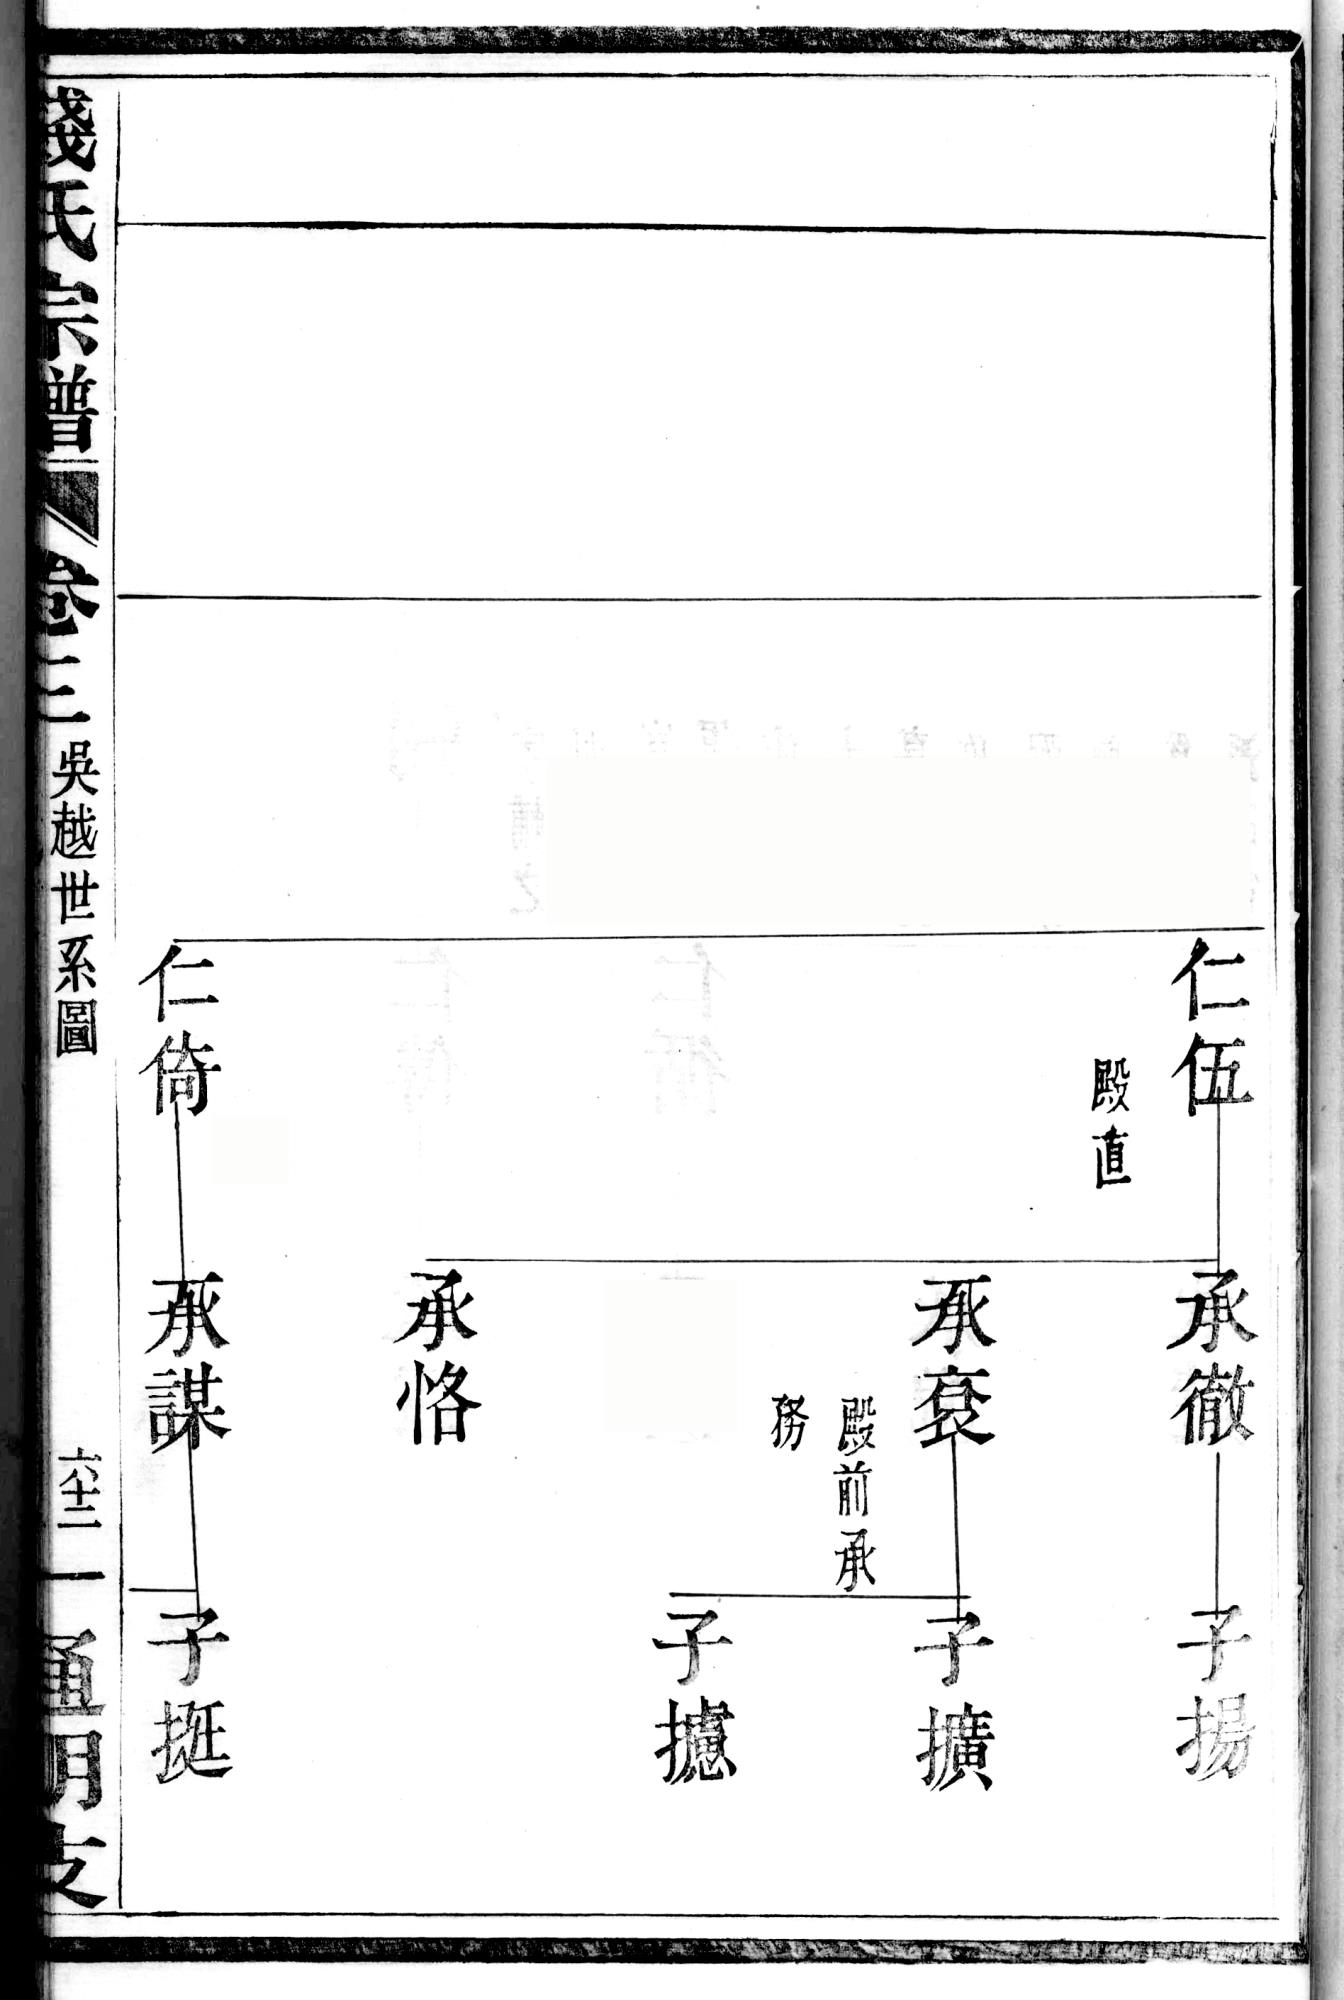 仁伍
殿直
仁倚
承徹
承袞
殿前承
務
承恪
承謀
子揚
子擴
子攄
子挺
錢氏宗譜
卷三
吳越世系圖
六十二
一
通明支